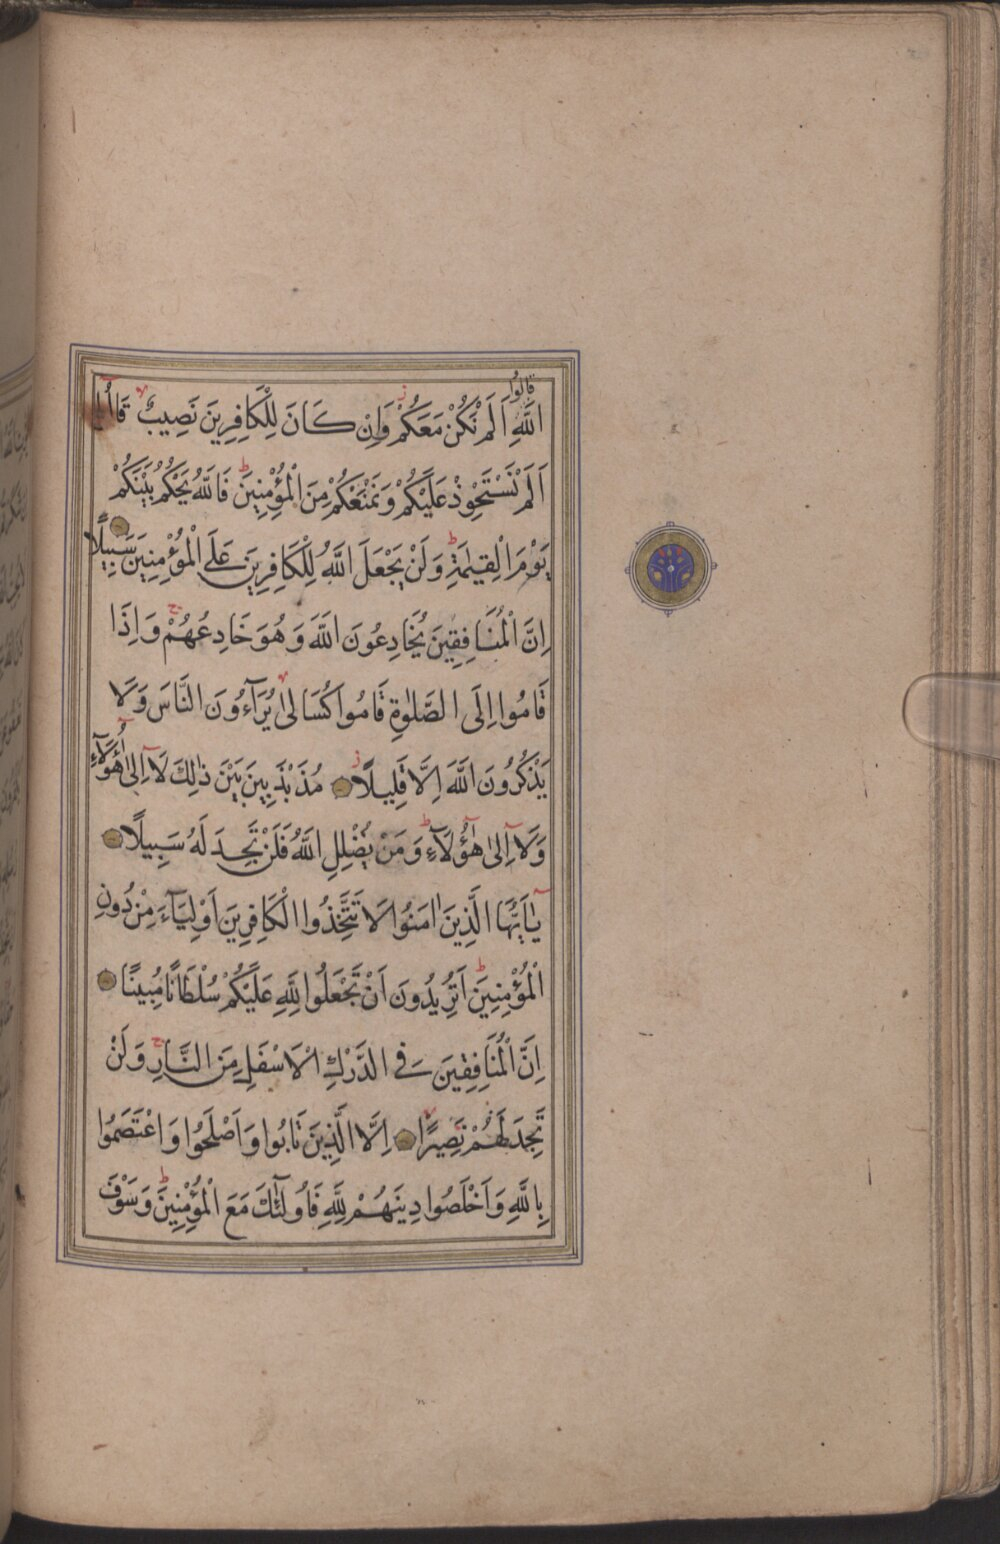 قَالُوا
اللّٰهِ اَلَمْ نَكُنْ مَعَكُمْ وَاِنْ كَانَ لِلْكَافِرِينَ نَصِيبٌ قَالُوا
اَلَمْ نَسْتَحْوِذْ عَلَيْكُمْ وَنَمْنَعْكُمْ مِنَ الْمُؤْمِنِينَ فَاللّٰهُ يَحْكُمُ بَيْنَكُمْ
يَوْمَ الْقِيٰمَةِ وَلَنْ يَجْعَلَ اللّٰهُ لِلْكَافِرِينَ عَلَى الْمُؤْمِنِينَ سَبِيلًا
اِنَّ الْمُنَافِقِينَ يُخَادِعُونَ اللّٰهَ وَهُوَ خَادِعُهُمْ وَاِذَا
قَامُوا اِلَى الصَّلٰوةِ قَامُوا كُسَالٰى يُرَآءُونَ النَّاسَ وَلَا
يَذْكُرُونَ اللّٰهَ اِلَّا قَلِيلًا مُذَبْذَبِينَ بَيْنَ ذٰلِكَ لَآ اِلٰى هٰٓؤُلَآءِ
وَلَآ اِلٰى هٰٓؤُلَآءِ وَمَنْ يُضْلِلِ اللّٰهُ فَلَنْ تَجِدَ لَهُ سَبِيلًا
يَٓا اَيُّهَا الَّذِينَ اٰمَنُوا لَا تَتَّخِذُوا الْكَافِرِينَ اَوْلِيَآءَ مِنْ دُونِ
الْمُؤْمِنِينَ اَتُرِيدُونَ اَنْ تَجْعَلُوا لِلّٰهِ عَلَيْكُمْ سُلْطَانًا مُبِينًا
اِنَّ الْمُنَافِقِينَ فِي الدَّرْكِ الْاَسْفَلِ مِنَ النَّارِ وَلَنْ
تَجِدَ لَهُمْ نَصِيرًا اِلَّا الَّذِينَ تَابُوا وَاَصْلَحُوا وَاعْتَصَمُوا
بِاللّٰهِ وَاَخْلَصُوا دِينَهُمْ لِلّٰهِ فَاُولٰٓئِكَ مَعَ الْمُؤْمِنِينَ وَسَوْفَ